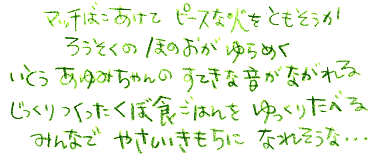 マッチばこあけて ピースな火をともそうか
ろうそくの ほのおが ゆらめく
いとう あゆみちゃんの すてきな音がながれる
じっくりつくったくぼ食ごはんを ゆっくりたべる
みんなで やさしいきもちに なれそうな・・・